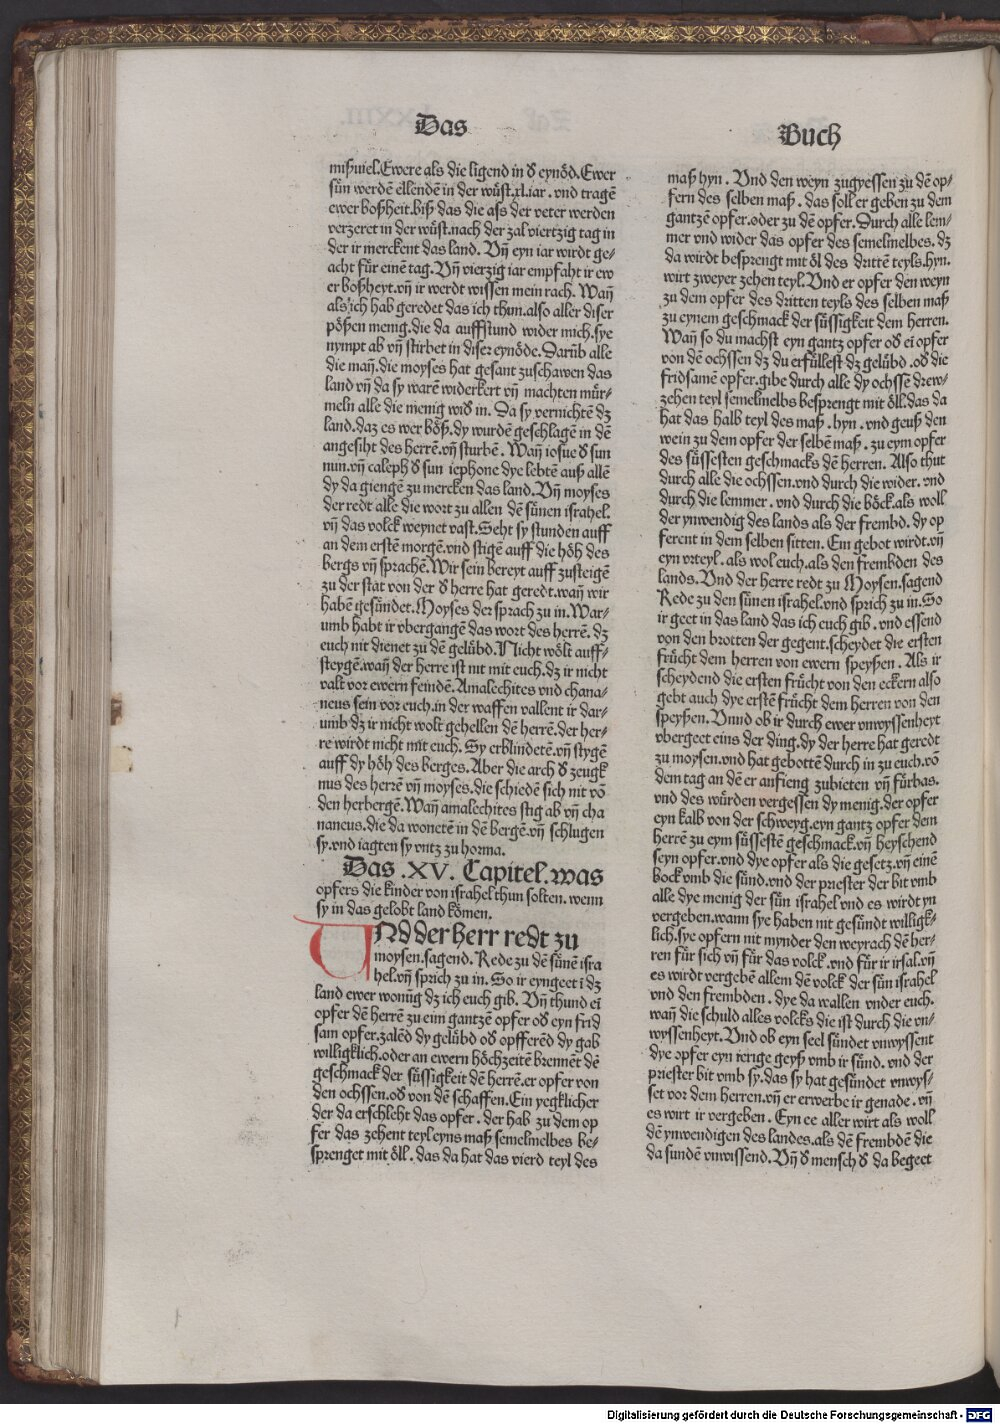 Das
Buch
mißuiel. Ewere als die ligend in d̕ eynöd. Ewer
sün werdē ellendē in der wüst .xl. iar . vnd tragē
ewer boßheit. biß das die aſs der veter werden
verzeret in der wüst. nach der zal viertzig tag in
der ir merckent das land. Vn̄ eyn iar wirdt ge-
acht für einē tag. Vn̄ vierzig iar empfaht ir ew
er boßheyt. vn̄ ir werdt wissen mein rach. Wan̄
als ich hab geredet das ich thun. also aller diser
pößen menig. die da auffstund wider mich. sye
nympt ab vn̄ stirbet in diser eynöde. Darūb alle
die man̄. die moyses hat gesant zuschawen das
land vn̄ da sy warē widerkert vn̄ machten mür-
meln alle die menig wid̕ in. Da sy vernichtē dz
land. daz es wer böß. dy wurdē geschlagē in dē
angesiht des herrē. vn̄ sturbē . Wan̄ iosue d̕ sun
nun. vn̄ caleph d̕ sun iephone dye lebtē auß allē
dy da giengē zu mercken das land. Vn̄ moyses
der redt alle die wort zu allen dē sünen israhel.
vn̄ das volck weynet vast. Seht sy stunden auff
an dem erstē morgē. vnd stigē auff die höh des
bergs vn̄ sprachē. Wir sein bereyt auff zusteigē
zu der stat von der d̕ herre hat geredt. wan̄ wir
habē gesündet. Moyses der sprach zu in. War-
umb habt ir vbergangē das wort des herrē. dz
euch nit dienet zu dē gelübd. Nicht wölt auff-
steygē. wan̄ der herre ist nit mit euch. dz ir nicht
valt vor ewern feindē. Amalechites vnd chana-
neus sein vor euch. in der waffen vallent ir dar-
umb dz ir nicht wolt gehellen dē herrē. der her-
re wirdt nicht mit euch. Sy erblindetē. vn̄ stygē
auff dy höh des berges. Aber die arch d̕ zeugk
nus des herrē vn̄ moyses. die schiedē sich nit vō
den herbergē. Wan̄ amalechites stig ab vn̄ cha
naneus. die da wonetē in dē bergē. vn̄ schlugen
sy. vnd iagten sy vntz zu horma.
Das .XV. Capitel. was
opfers die kinder von israhel thun solten. wenn
sy in das gelobt land kömen.
UNd der herr redt zu
moysen. sagend. Rede zu dē sünē isra
hel. vn̄ sprich zu in. So ir eyngeet ī dz
land ewer wonūg dz ich euch gib. Vn̄ thund eī
opfer dē herrē zu eim gantzē opfer od̕ eyn frid
sam opfer. zalēd dy gelübd od̕ opfferēd dy gab
willigklich. oder an ewern höchzeitē brennēt dē
geschmack der süssigkeit dē herrē. er opfer von
den ochssen. od̕ von dē schaffen. Ein yegklicher
der da erschlecht das opfer . der hab zu dem op
fer das zehent teyl eyns maß semelmelbes be-
sprenget mit öll . das da hat das vierd teyl des
maß hyn . Vnd den weyn zugyessen zu dē op-
fern des selben maß . das soll er geben zu dem
gantzē opfer. oder zu dē opfer. Durch alle lem-
mer vnd wider das opfer des semelmelbes. dz
da wirdt besprengt mit öl des drittē teyls. hyn.
wirt zweyer zehen teyl. Vnd er opfer den weyn
zu dem opfer des dritten teyls des selben maß
zu eynem geschmack der süssigkeit dem herren.
Wan̄ so du machst eyn gantz opfer od̕ ei opfer
von dē ochssen dz du erfüllest dz gelübd . od̕ die
fridsamē opfer. gibe durch alle dy ochssē drew-
zehen teyl semelmelbs besprengt mit öll. das da
hat das halb teyl des maß . hyn . vnd geuß den
wein zu dem opfer der selbē maß . zu eym opfer
des süssesten geschmacks dē herren. Also thut
durch alle die ochssen. vnd durch die wider. vnd
durch die lemmer . vnd durch die böck. als woll
der ynwendig des lands als der frembd. dy op
ferent in dem selben sitten. Ein gebot wirdt. vn̄
eyn vrteyl . als wol euch. als den frembden des
lands. Vnd der herre redt zu Moysen. sagend
Rede zu den sünen israhel. vnd sprich zu in. So
ir geet in das land das ich euch gib . vnd essend
von den brotten der gegent. scheydet die ersten
frücht dem herren von ewern speyßen . Als ir
scheydend die ersten frücht von den eckern also
gebt auch dye erstē frücht dem herren von den
speyßen. Vnnd ob ir durch ewer vnwyssenheyt
vbergeet eins der ding. dy der herre hat geredt
zu moysen. vnd hat gebottē durch in zu euch. vō
dem tag an dē er anfieng zubieten vn̄ fürbas.
vnd des würden vergessen dy menig. der opfer
eyn kalb von der schweyg. eyn gantz opfer dem
herrē zu eym süssestē geschmack. vn̄ heyschend
seyn opfer. vnd dye opfer als die gesetz. vn̄ einē
bock vmb die sünd. vnd der priester der bit vmb
alle dye menig der sün israhel vnd es wirdt yn
vergeben. wann sye haben nit gesündt willigk-
lich. sye opfern nit mynder den weyrach dē her-
ren für sich vn̄ für das volck .vnd für ir irsal. vn̄
es wirdt vergebē allem dē volck der sün israhel
vnd den frembden . dye da wallen vnder euch.
wan̄ die schuld alles volcks die ist durch die vn-
wyssenheyt. Vnd ob eyn seel sündet vnwyssent
dye opfer eyn ierige geyß vmb ir sünd. vnd der
priester bit vmb sy. das sy hat gesündet vnwys-
set vor dem herren. vn̄ er erwerbe ir genade . vn̄
es wirt ir vergeben . Eyn ee aller wirt als woll
dē ynwendigen des landes. als dē frembdē die
da sundēt vnwissend. Vn̄ d̕ mensch d̕ da begeet
Digitalisierung gefördert durch die Deutsche Forschungsgemeinschaft - DFG